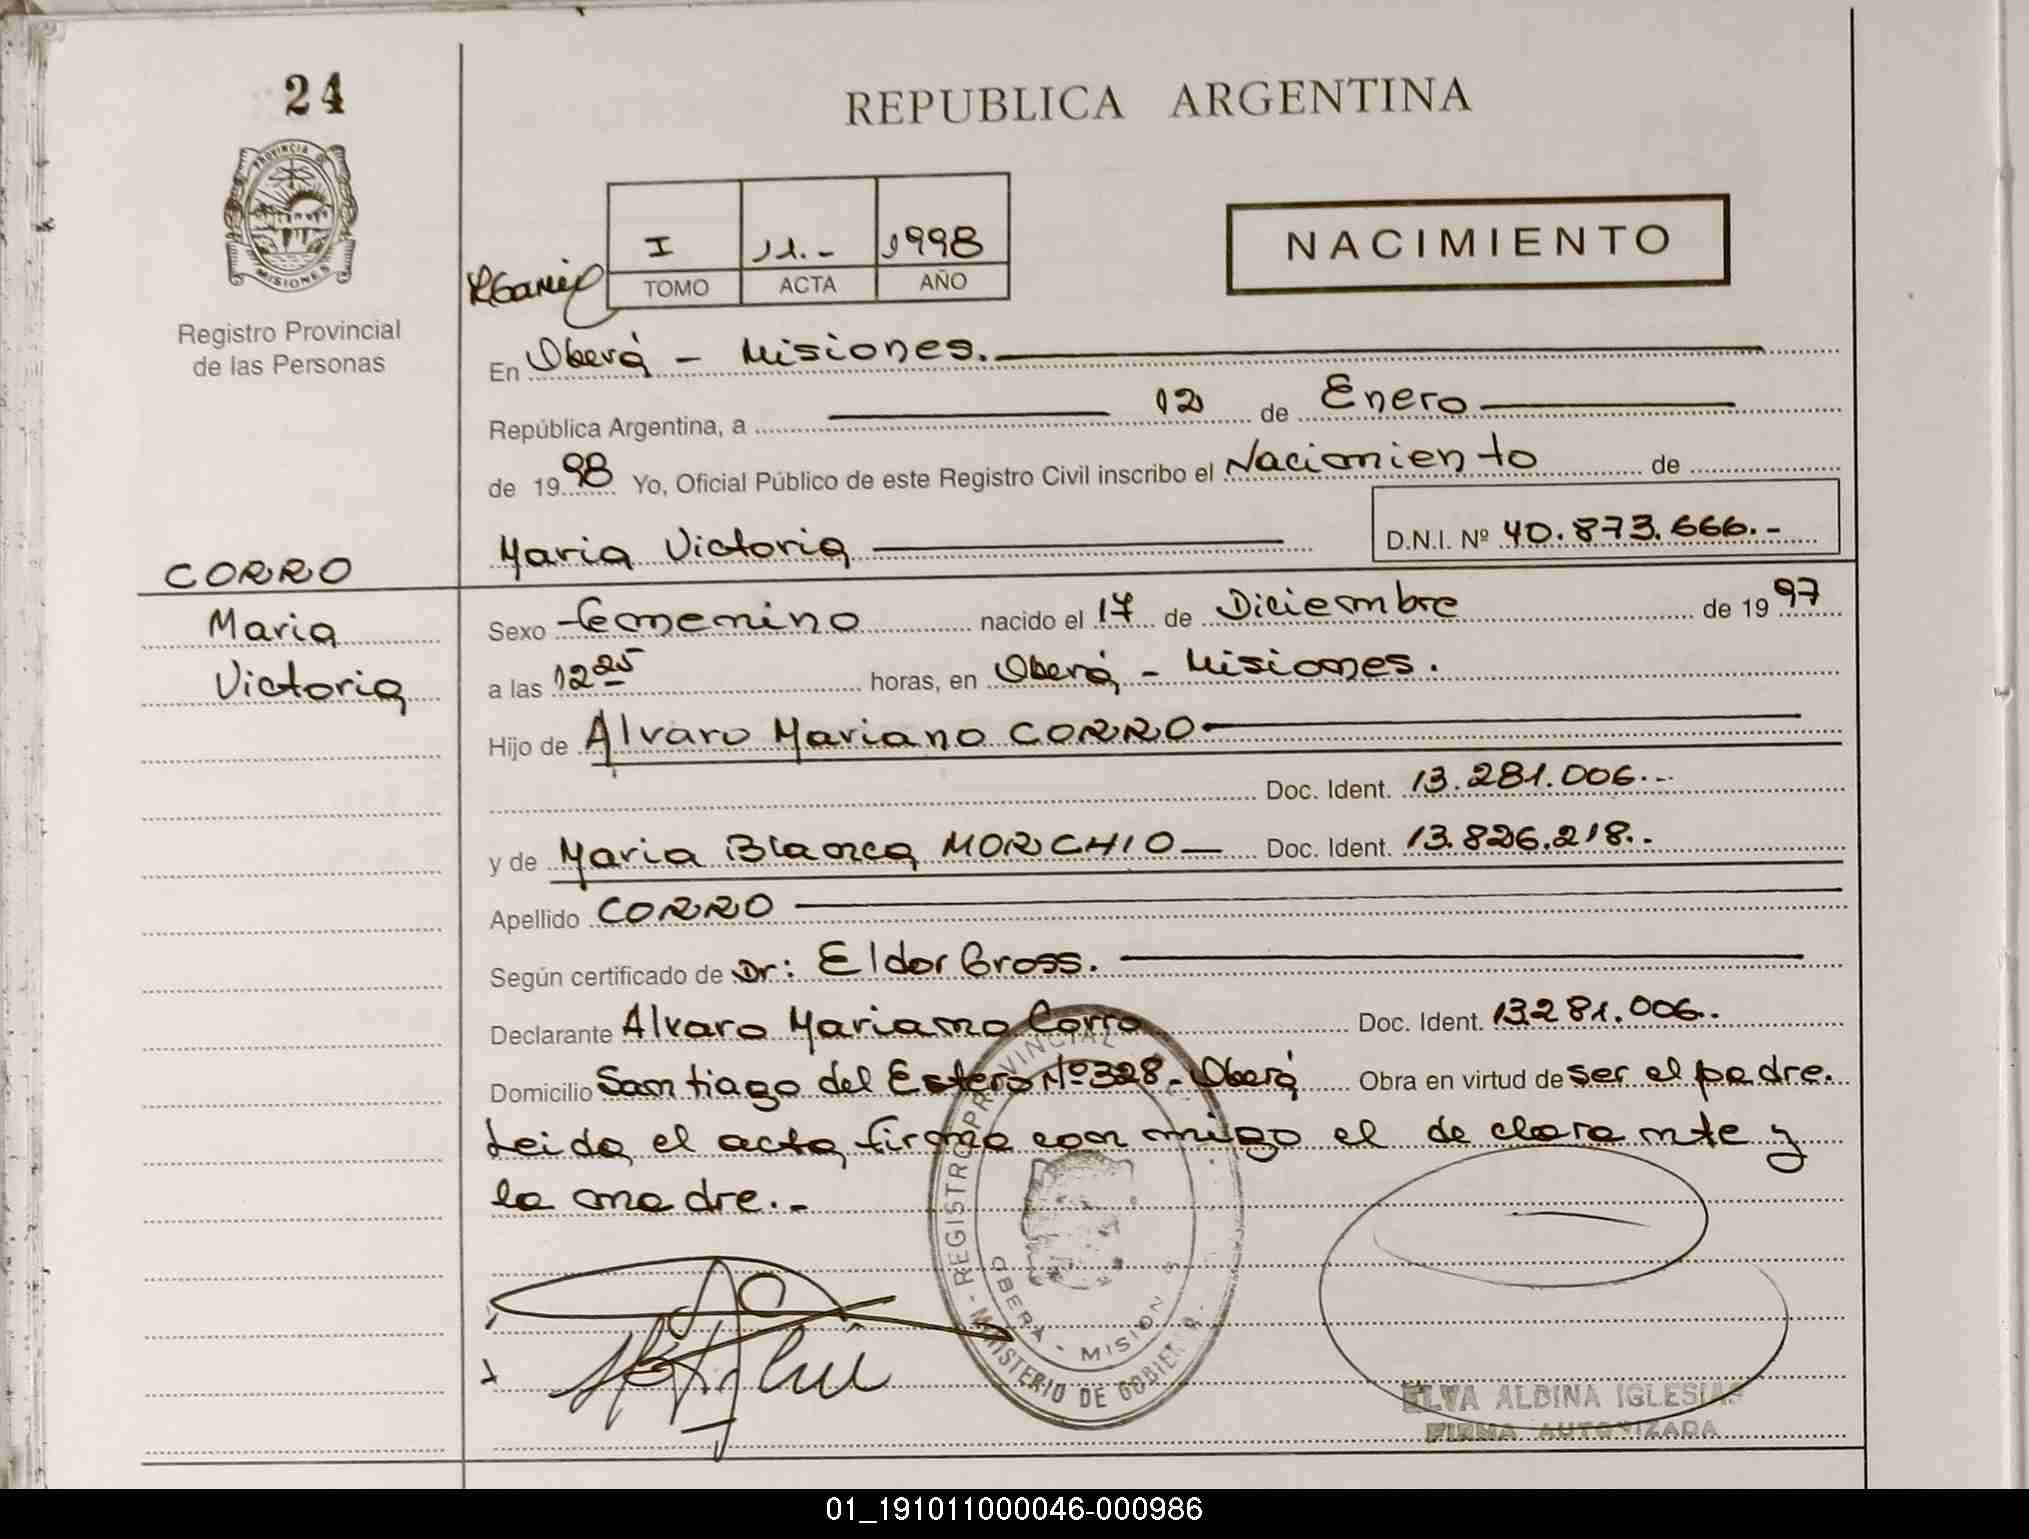 24
REPUBLICA ARGENTINA
PROVINCIA DE
MISIONES
Registro Provincial
de las Personas
I 11.- 1998
TOMO ACTA AÑO
NACIMIENTO
En Oberá - Misiones.
República Argentina, a 12 de Enero
de 1998 Yo, Oficial Público de este Registro Civil inscribo el Nacimiento de
Maria Victoria D.N.I. Nº 40.873.666.-
CORRO
Maria
Victoria
Sexo femenino nacido el 17 de Diciembre de 1997
a las 12 25 horas, en Oberá - Misiones.
Hijo de Alvaro Mariano CORRO
Doc. Ident. 13.281.006.--
y de Maria Blanca MORCHIO Doc. Ident. 13.826.218..
Apellido CORRO
Según certificado de Dr: Eldor Gross.
Declarante Alvaro Mariano Corro Doc. Ident. 13281.006..
Domicilio Santiago del Estero Nº 328 - Oberá Obra en virtud de ser el padre.
Leida el acta, firma con migo el declarante y
la madre.-
- REGISTRO PROVINCIAL
OBERA - MISION S
- MINISTERIO DE GOBIERNO -
ELVA ALBINA IGLESIAS
FIRMA AUTORIZADA
01_191011000046-000986